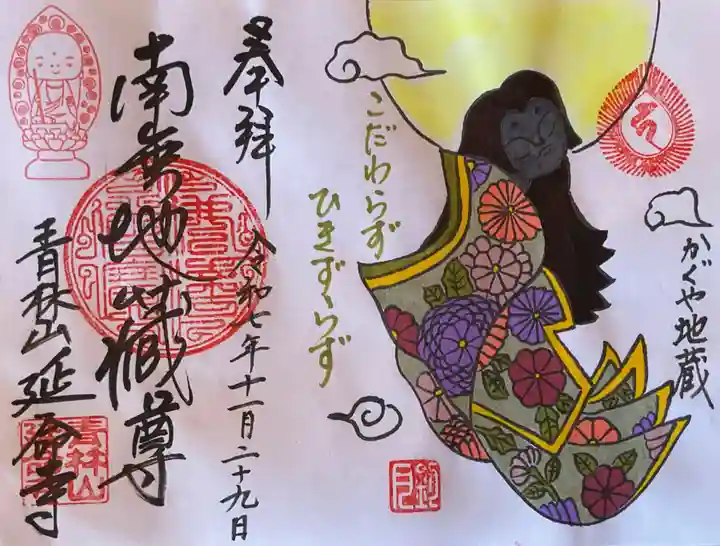 かぐや地蔵
こだわらず
ひきずらず
奉拝
令和七年十一月二十九日
南無地蔵尊
青林山延命寺
青林山